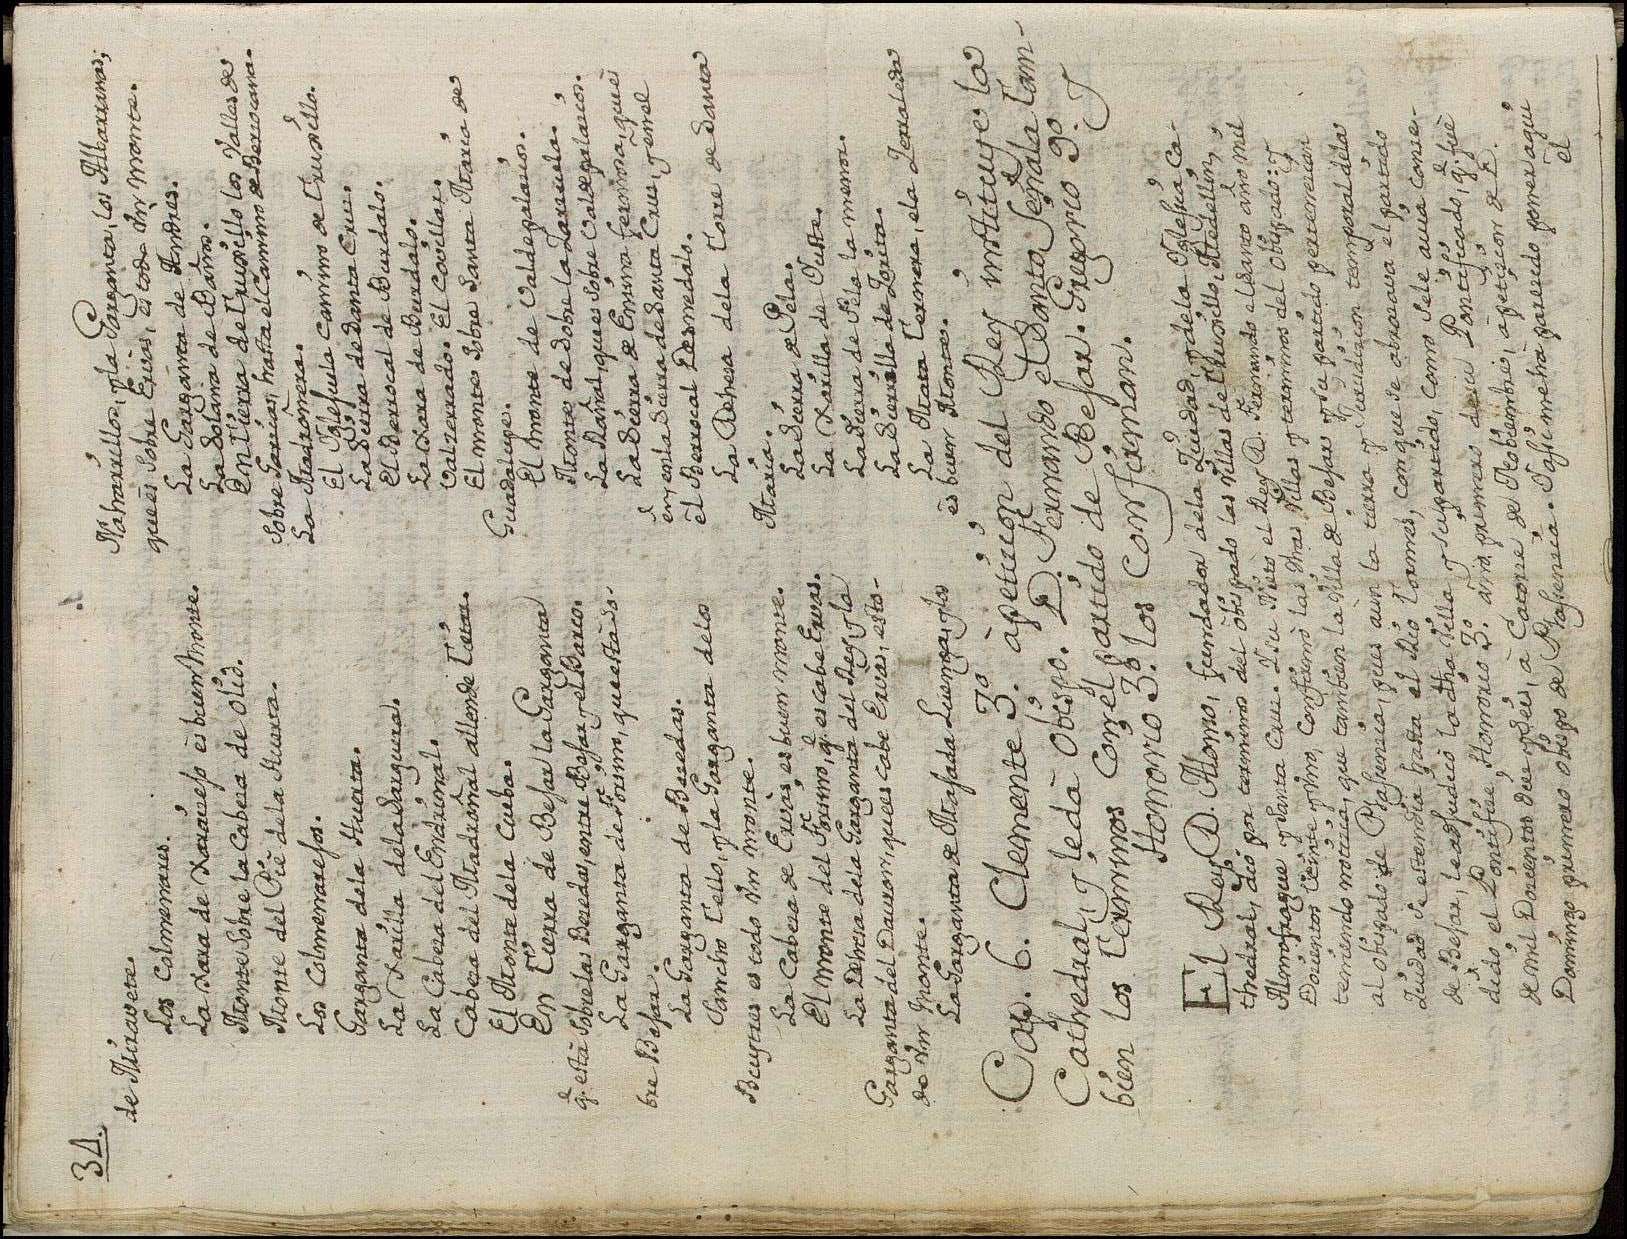 34.
de Miravete.
Los Colmenares.
La Xara de Xaraisejo es buen Monte.
Monte sobre la Cabeza de Olid.
Monte del Pie de la Huerta.
Los Colmenarejos.
Garganta de la Huerta.
La Xarilla de la Sargura.
La Cabeza del Endrinal.
Cabeza del Madroñal allende Tietar.
El Monte de la Cuba.
En Tierra de Bejar la Garganta
q̃ está sobre las Bezedas, entre Bejar, y el Barco.
La Garganta de Forino, que está so-
bre Bejar.
La Garganta de Bezedas.
Sancho Tello, y la Garganta de los
Bueytres es todo Vn monte.
La Cabeza de Eruas es buen monte.
El monte del Fresno, q̃ es cabe Eruas.
La Dehesa de la Garganta del Rey, y la
Garganta del Dauron, que es cabe Eruas, es to-
do Vn Monte.
La Garganta de Majada Luenga, y los
Nabarrillos, y la Garganta, los Albarranas,
que es sobre Eruas, es todo Vn Monte.
La Garganta de Andres.
La Solana de Baños.
En Tierra de Truxillo los Valles de
sobre Garcias, hasta el Camino de Berzocana.
La Madroñera.
El Salesuela camino de Truxillo.
La Sierra de Santa Cruz.
El Berrocal de Burdalo.
La Xara de Burdalo.
Valzerrado. El Covillar.
El montes sobre Santa Maria de
Guadalupe.
El Monte de Valdegalacios.
Monte de sobre la Zarzuela.
La Rañal, que es sobre Valdepalacios.
La Sierra de Emina Fermosa, que
en la Sierra de Santa Cruz, y en el
el Berrocal Desmedalo.
La Dehesa de la Torre de Santa
Maria.
La Sierra de Pela.
La Xarilla de Yuste.
La Sierra de Pela la menor.
La Sierrilla de Zorita.
La Mata Carnera, e la Zerraleda
es buen Monte.
Cap. 6. Clemente 3.º à petición del Rey instituye la
Cathedral, y le dà Obispo. D. Fernando el Santo señala tam-
bien los Terminos con el partido de Bejar. Gregorio 9.º y
Honorio 3.º los confirman.
El Rey D. Alonso, fundador de la Ziudad, y de la Yglesia Ca-
thedral, dió por terminos del Obispado las Villas de Truxillo, Medellin,
Monfrague y Santa Cruz. Y su Nieto el Rey D. Fernando el Santo año mil
Docientos Veinte y Vno, confirmò las dhas Villas y terminos del Obispado: y
teniendo noticia, que tambien la Villa de Bejar y su partido pertenecian
al Obispado de Plasencia, pues aun la tierra y Jurisdicion temporal de la
Ziudad se estendia hasta el Rio Tormes, conque se abrazava el partido
de Bejar, le adjudicò la dha Villa y su partido, como se le avia conce-
dido el Pontifice, Honorio 3.º año primero de su Pontificado, q̃ fuè
de mil Docientos diez y seis, à Catorce de Nobiembre, à peticion de D.
Domingo primero Obispo de Plasencia. Y assi me ha parecido poner aqui
el